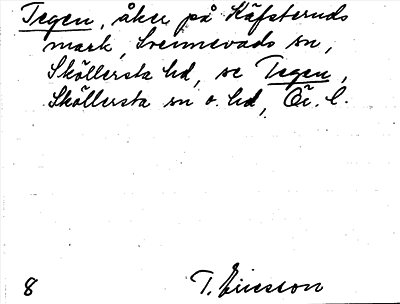 Tegen, åker på Käfsteruds
mark, Svennevads sn,
Sköllersta hd, se Tegen,
Sköllersta sn o. hd, Ör. l.
8 T. Ericsson